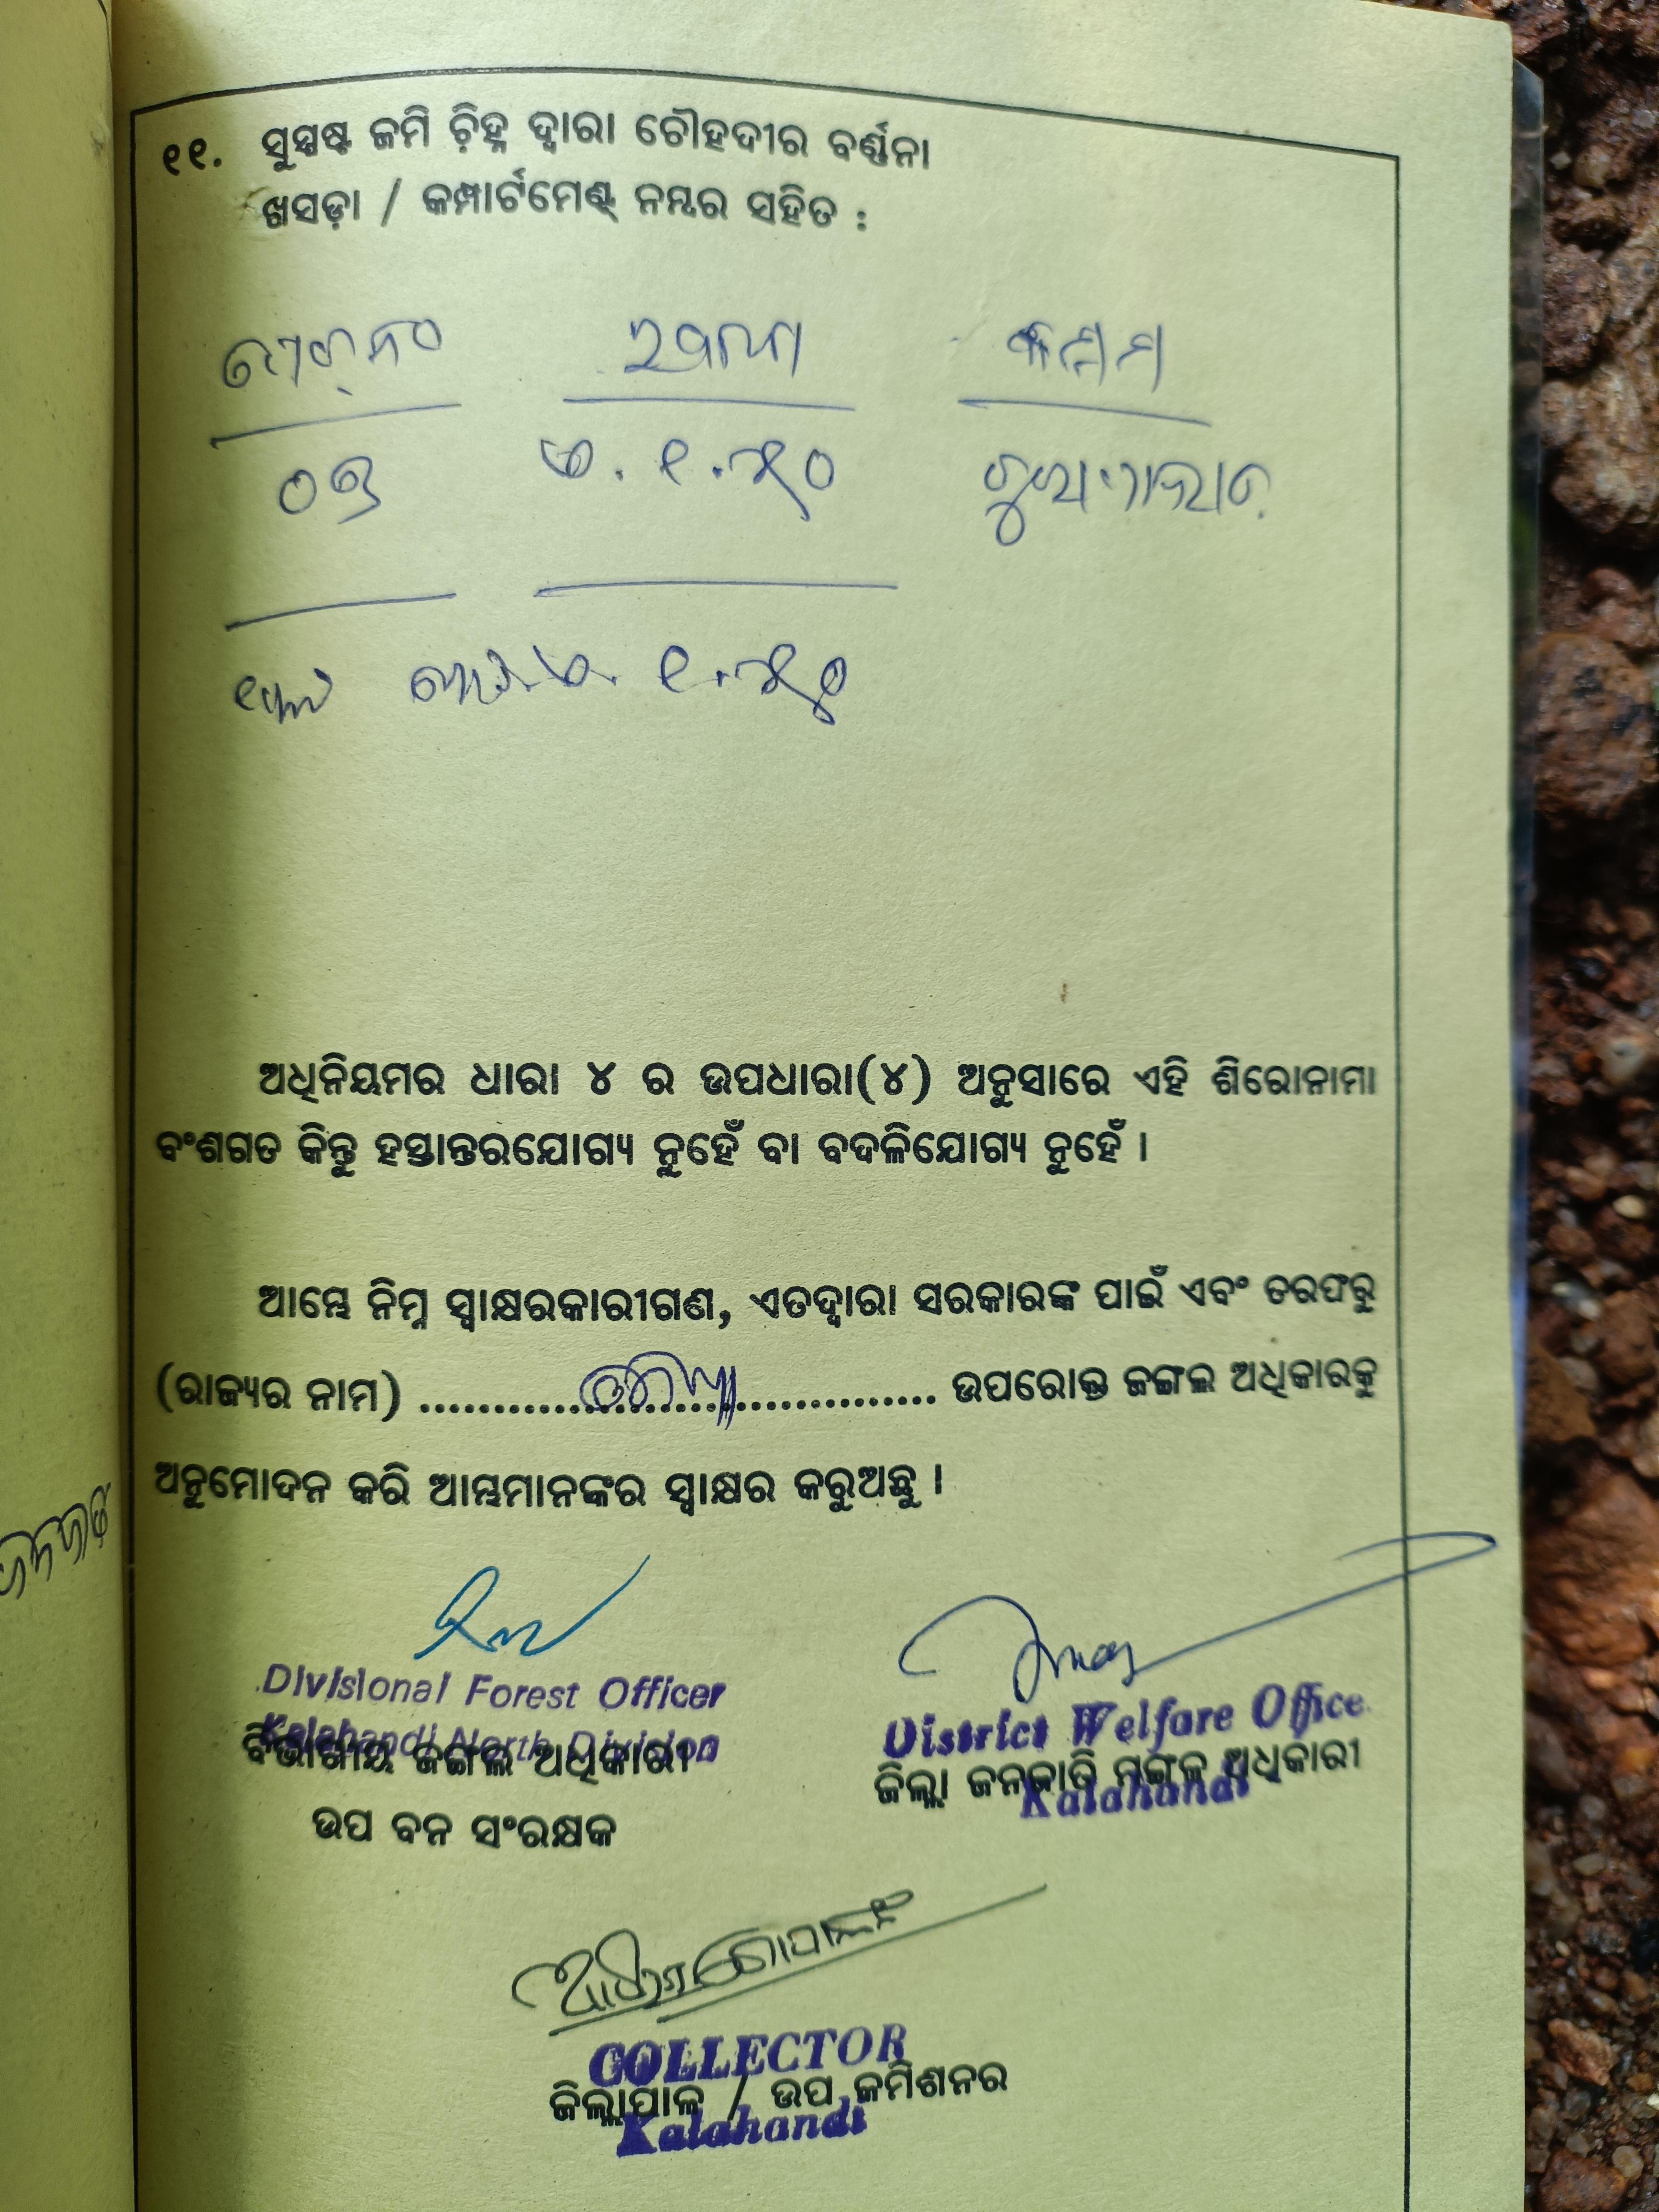 ୧୧. ସୁସ୍ପଷ୍ଟ ଜମି ଚିହ୍ନ ଦ୍ୱାରା ଚୌହଦୀର ବର୍ଣ୍ଣନା
ଖସଡ଼ା / କମ୍ପାର୍ଟମେଣ୍ଟ୍ ନମ୍ବର ସହିତ :
ପ୍ଲଟ୍ ନଂ ରକବା କିସମ
ଏ. ୧.୫୦
ଏ. ୧.୫୦
ଅଧିନିୟମର ଧାରା ୪ ର ଉପଧାରା(୪) ଅନୁସାରେ ଏହି ଶିରୋନାମା
ବଂଶଗତ କିନ୍ତୁ ହସ୍ତାନ୍ତରଯୋଗ୍ୟ ନୁହେଁ ବା ବଦଳିଯୋଗ୍ୟ ନୁହେଁ ।
ଆମ୍ଭେ ନିମ୍ନ ସ୍ୱାକ୍ଷରକାରୀଗଣ, ଏତଦ୍ୱାରା ସରକାରଙ୍କ ପାଇଁ ଏବଂ ତରଫରୁ
(ରାଜ୍ୟର ନାମ) ଓଡିଶା ଉପରୋକ୍ତ ଜଙ୍ଗଲ ଅଧିକାରକୁ
ଅନୁମୋଦନ କରି ଆମ୍ଭମାନଙ୍କର ସ୍ୱାକ୍ଷର କରୁଅଛୁ ।
Divisional Forest Officer
Kalahandi North Division
ବିଭାଗୀୟ ଜଙ୍ଗଲ ଅଧିକାରୀ
ଉପ ବନ ସଂରକ୍ଷକ
District Welfare Office
ଜିଲ୍ଲା ଜନଜାତି ମଙ୍ଗଳ ଅଧିକାରୀ
Kalahandi
COLLECTOR
ଜିଲ୍ଲାପାଳ / ଉପ କମିଶନର
Kalahandi